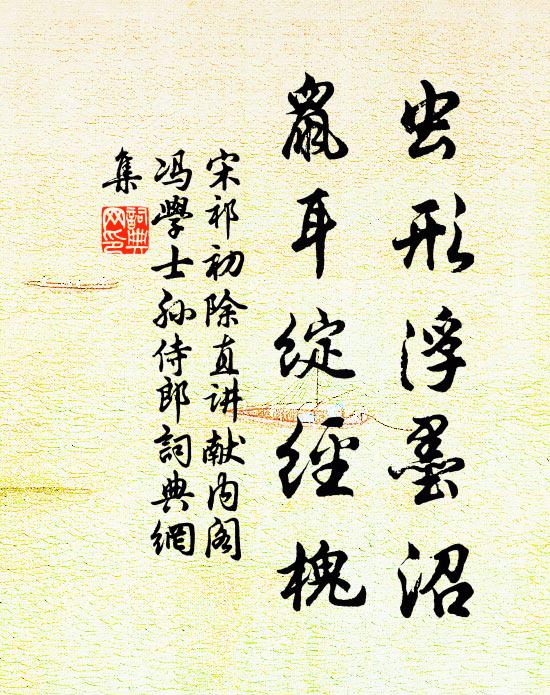 虫形浮墨沼
鼠耳绽經槐
宋祁初除直讲献内阁
冯學士孙侍郎詞典網
集
詞典
网印